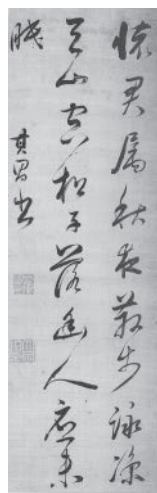 懷君屬秋夜散步詠涼
天山空松子落幽人應未
眠
其昌書